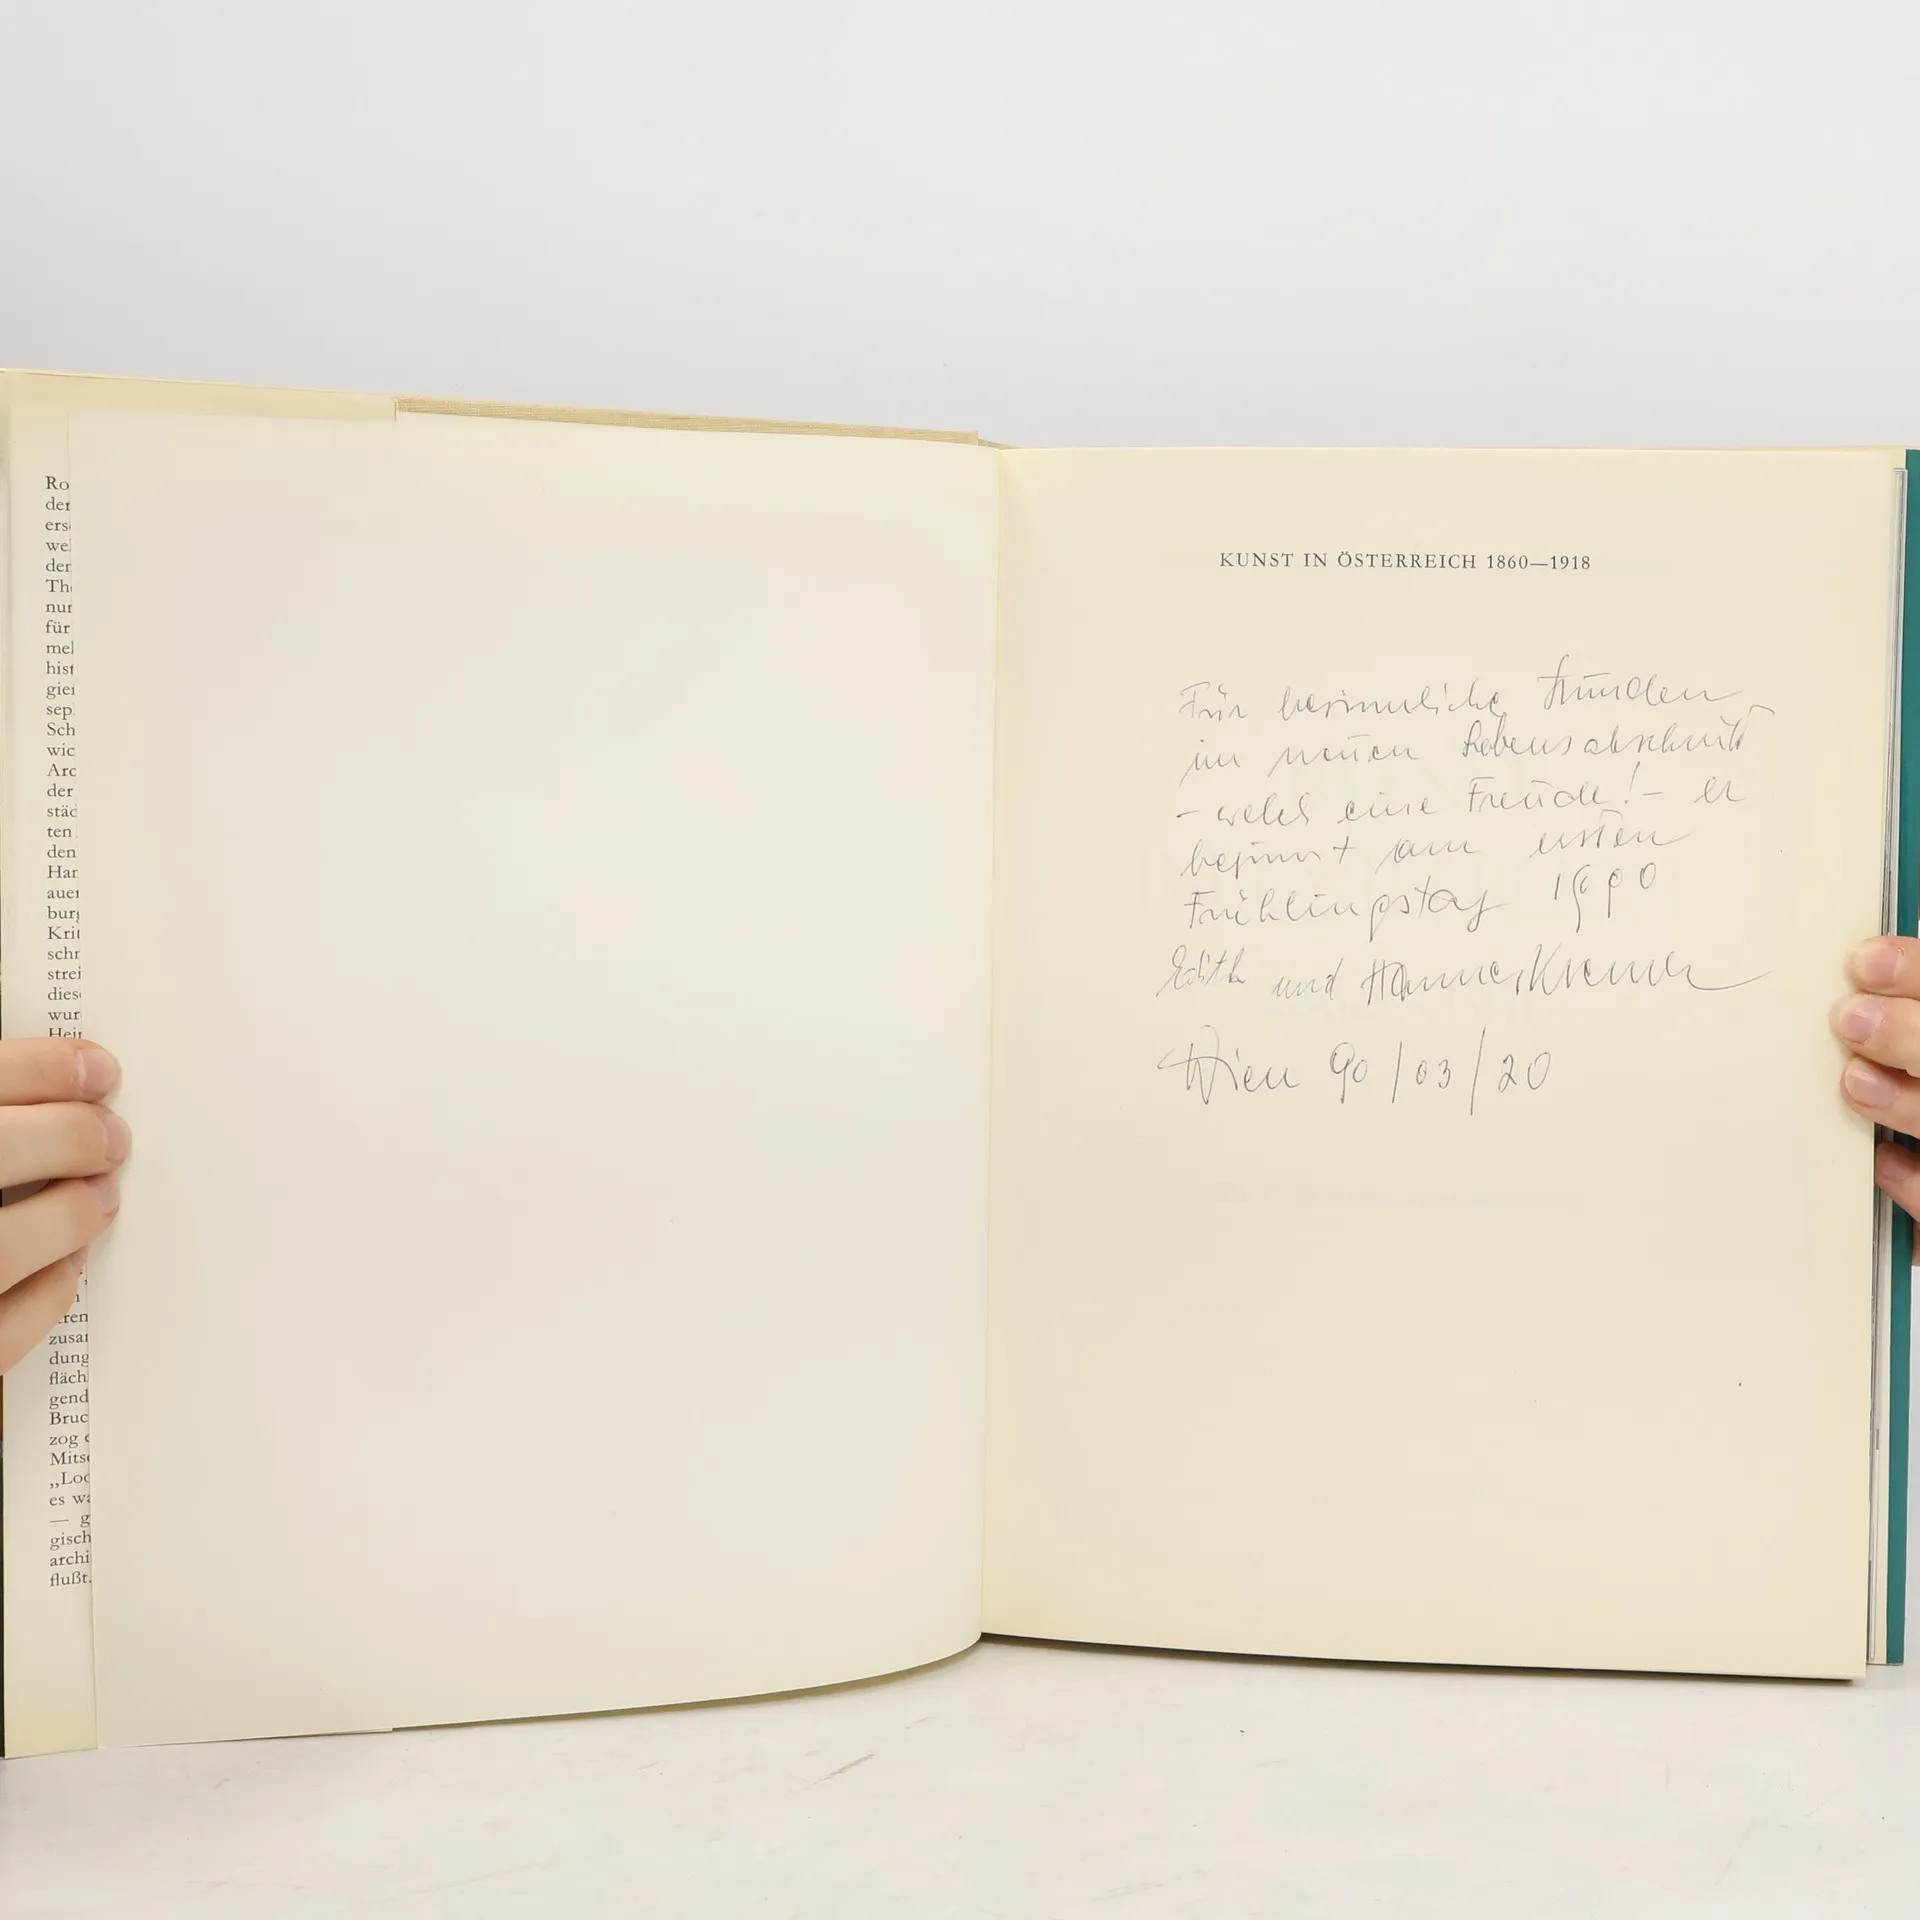 Ro
der
ers
wel
der
The
nur
für
mel
hist
gier
sep
Sch
wic
Arc
der
städ
ten
den
Har
auer
burg
Krit
schr
strei
dies
wur
Hein
n
eren
zusar
dung
fläch
gend
Bruc
zog e
Mitse
„Loo
es wa
— g
gisch
archi
flußt.
KUNST IN ÖSTERREICH 1860—1918
Für besinnliche Stunden
im neuen Lebensabschnitt
– welch eine Freude! – er
beginnt am ersten
Frühlingstag 1990
Edith und Hannes Kremer
Wien 90/03/20